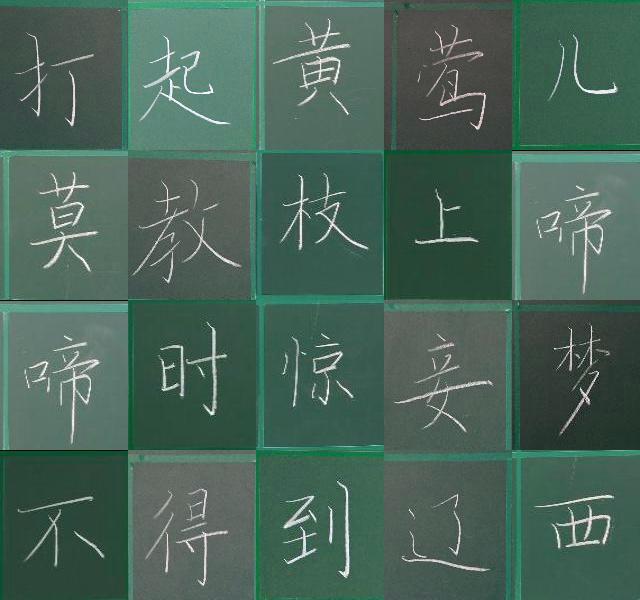 打起黄莺儿
莫教枝上啼
啼时惊妾梦
不得到辽西